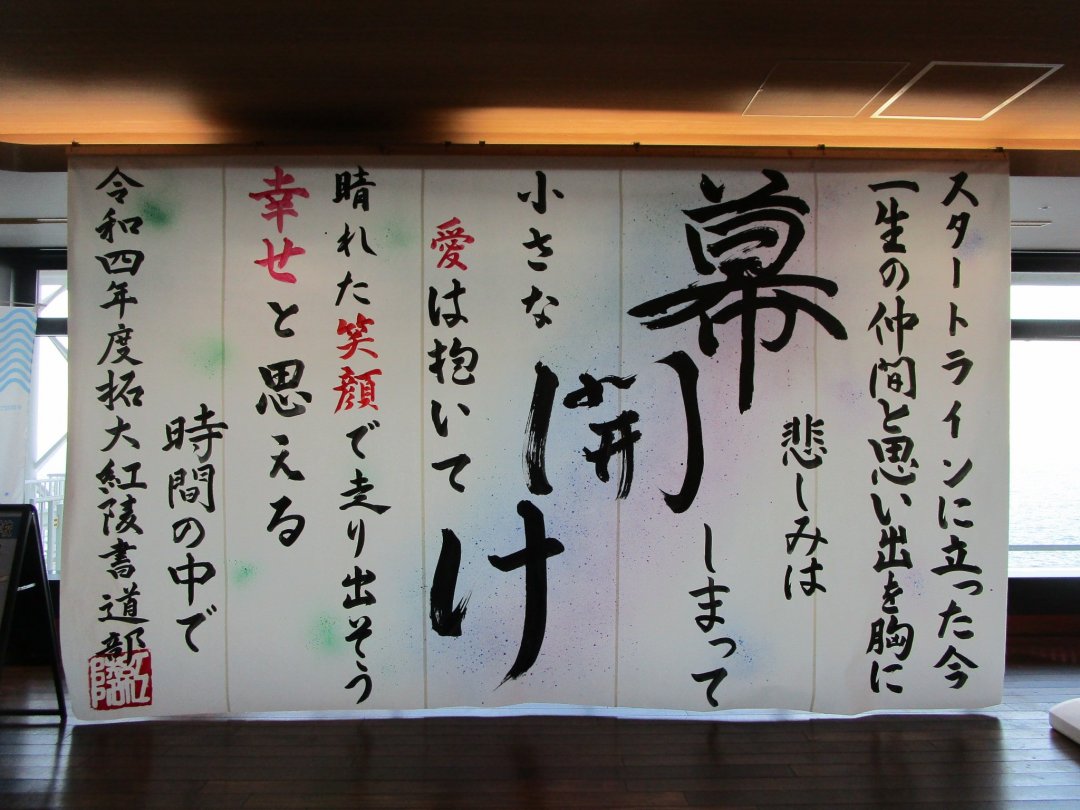 スタートラインに立った今
一生の仲間と思い出を胸に
悲しみは
しまって
幕開け
小さな
愛は抱いて
晴れた笑顔で走り出そう
幸せと思える
時間の中で
令和四年度拓大紅陵書道部